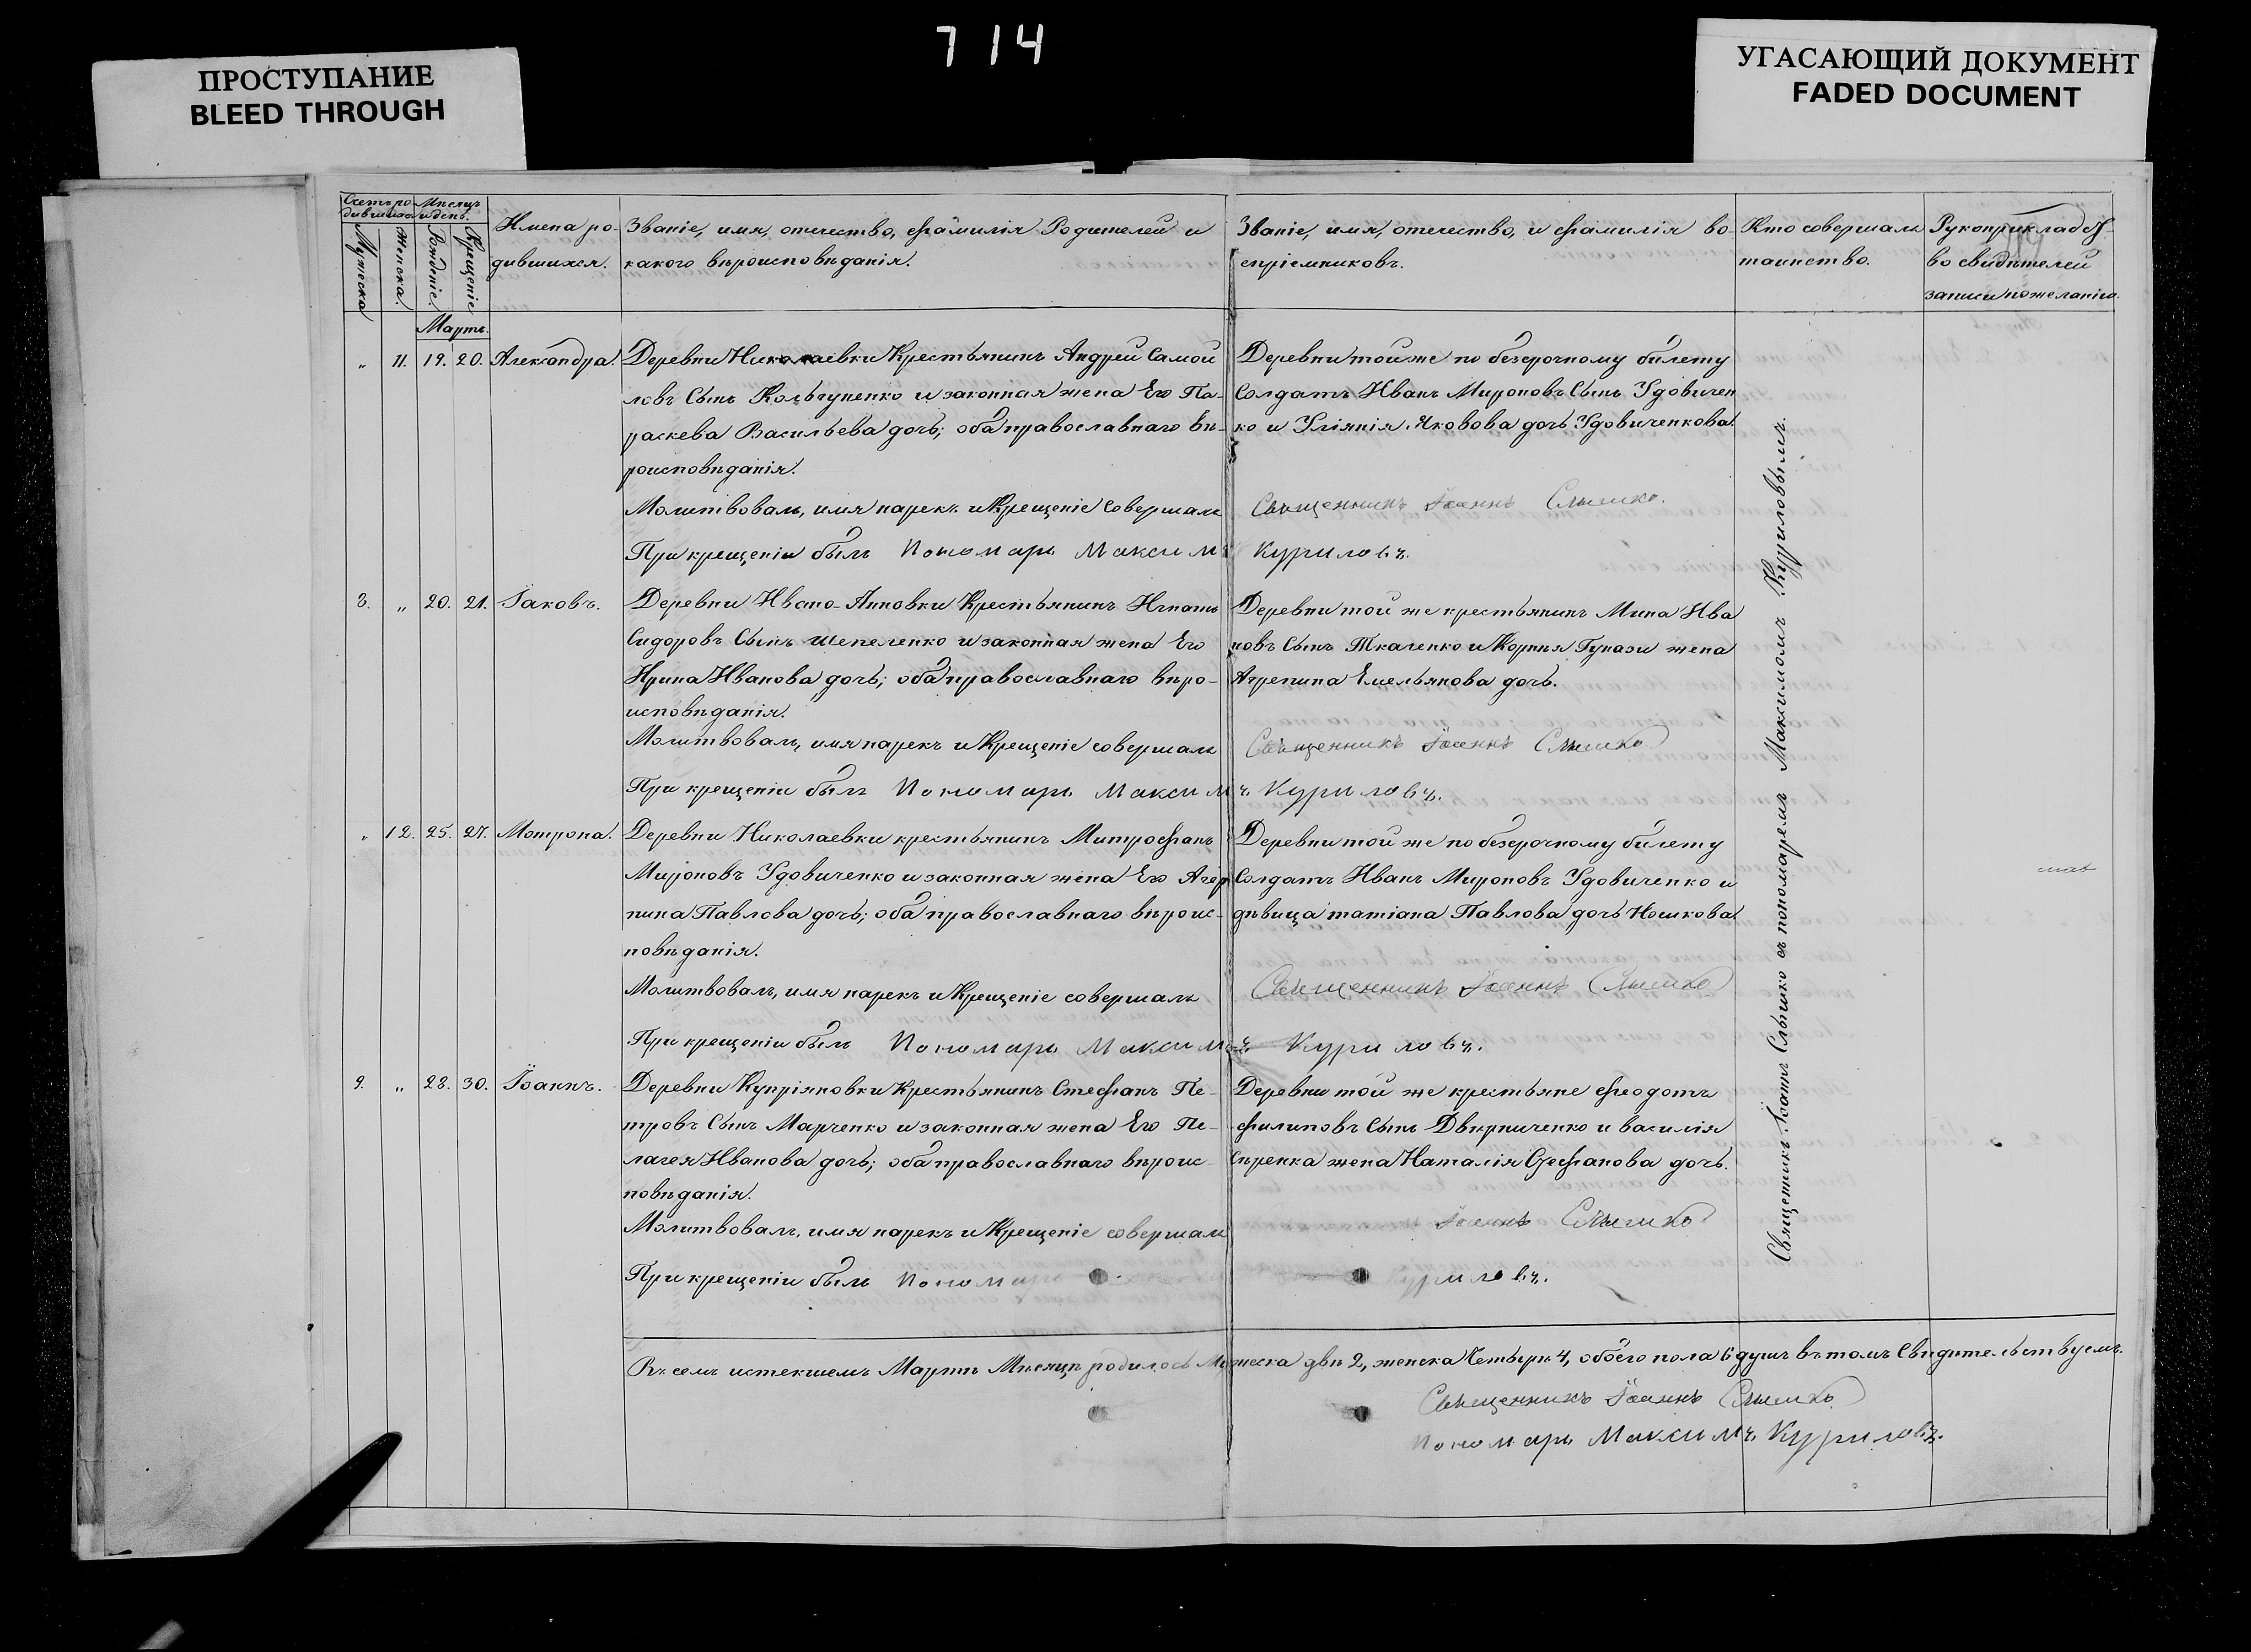 714
ПРОСТУПАНИЕ
BLEED THROUGH
УГАСАЮЩИЙ ДОКУМЕНТ
FADED DOCUMENT
Счетъ ро-
дившихся
Мѣсяцъ
и день.
Мужеска
Женска.
Рожденіе.
Крещеніе
Имена ро-
дившихся.
Званіе, имя, отечество, фамилія Родителей и
какого вѣроисповѣданія.
Званіе, имя, отечество, и фамилія во-
спріемниковъ.
Кто совершалъ
таинство.
Рукоприкладст-
во свидѣтелей
записи по желанію.
Мартъ.
„ 11. 19. 20. Александра.
Деревни Николаевки Крестьянинъ Андрей Самой
ловъ Сынъ Кольчуненко и законная жена Его Па-
раскева Васильева дочь; оба православнаго вѣ-
роисповѣданія.
Молитвовалъ, имя нарекъ и Крещеніе совершалъ
При крещеніи былъ Пономарь Максимъ
Деревни той же по безсрочному билету
Солдатъ Иванъ Мироновъ Сынъ Удовичен
ко и Уліянія Яковова дочь Удовиченкова.
Священникъ Іоаннъ Слышко.
Куриловъ.
8. „ 20. 21. Іаковъ.
Деревни Ивано-Анновки Крестьянинъ Игнатъ
Сидоровъ Сынъ Шепеленко и законная жена Его
Ирина Иванова дочь; оба православнаго вѣро-
исповѣданія.
Молитвовалъ, имя нарекъ и Крещеніе совершалъ
При крещеніи былъ Пономарь Максим
Деревни той же крестьянинъ Мина Ива
новъ Сынъ Ткаченко и Корнія жена
Агрепина Емельянова дочь.
Священникъ Іоаннъ Слышко
ъ Куриловъ.
„ 12. 25. 27. Мотрона.
Деревни Николаевки крестьянинъ Митрофанъ
Мироновъ Удовиченко и законная жена Его Агер
пина Павлова дочь; оба православнаго вѣроис-
повѣданія.
Молитвовалъ, имя нарекъ и Крещеніе совершалъ
При крещеніи былъ Пономарь Максим
Деревни той же по безсрочному билету
Солдатъ Иванъ Мироновъ Удовиченко и
дѣвица татіана Павлова дочь Ношкова
Священникъ Іоаннъ Слышко
ъ Куриловъ.
9. „ 28. 30. Іоаннъ.
Деревни Купріяновки Крестьянинъ Стефанъ Пе-
тровъ Сынъ Марченко и законная жена Его Пе-
лагея Иванова дочь; оба православнаго вѣроис-
повѣданія.
Молитвовалъ, имя нарекъ и Крещеніе совершалъ
При крещеніи былъ Пономарь
Деревни той же крестьяне Феодотъ
Филиповъ Сынъ и василія
жена Наталія Стефанова дочь.
Іоаннъ Слышко
Куриловъ.
Священникъ Іоаннъ Слышко съ пономаремъ Максимомъ Куриловымъ.
Въ семъ истекшемъ Мартѣ Мѣсяцѣ родилось Мужеска двѣ 2, женска Четыре 4, обоего пола 6 душъ въ томъ Свидѣтельствуемъ.
Священникъ Іоаннъ Слышко
Пономарь Максимъ Куриловъ.